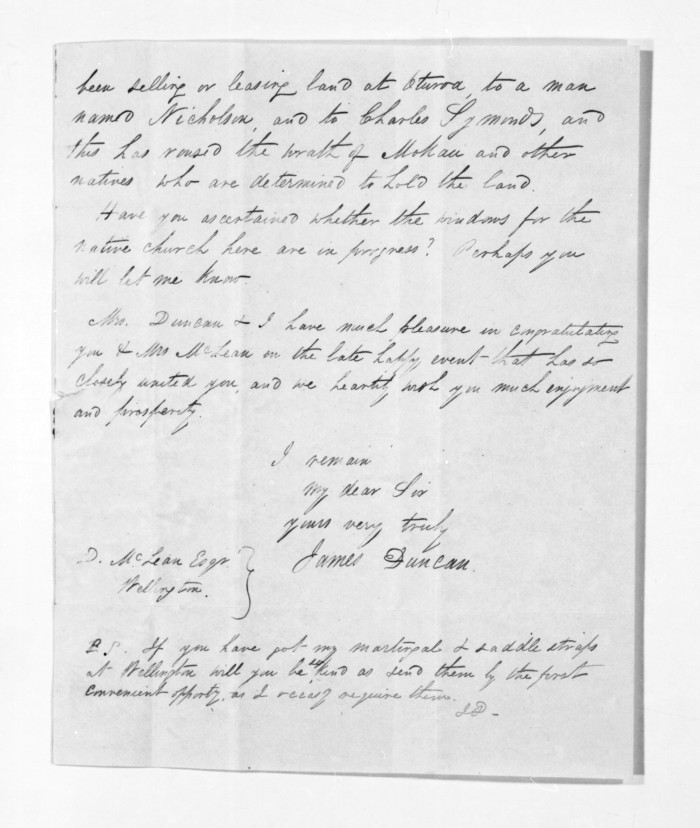 been selling or leasing land at Oturoa, to a man
named Nicholson, and to Charles Symonds, and
this has roused the wrath of Mokau and other
natives who are determined to hold the land.
Have you ascertained whether the windows for the
native church here are in progress? Perhaps you
will let me know.
Mrs. Duncan & I have much pleasure in congratulating
you & Mrs McLean on the late happy event that has so
closely united you, and we heartily wish you much enjoyment
and prosperity.
I remain
my dear Sir
yours very truly
James Duncan.
D. McLean Esqr.
Wellington.
P.S. If you have got my martingal & saddle straps
at Wellington will you be so kind as send them by the first
convenient opporty. as I require them.
J D -